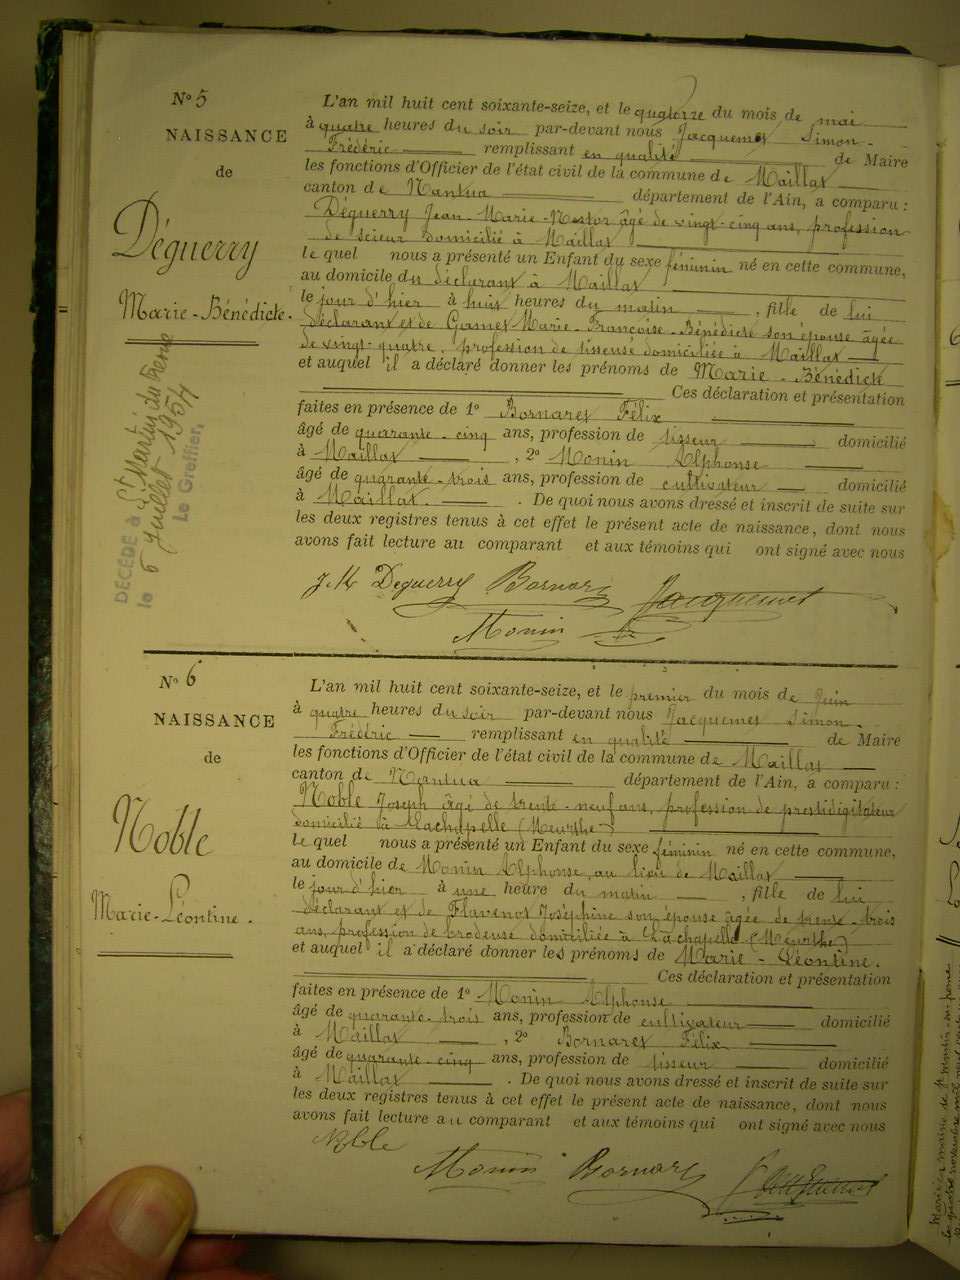 N° 5
NAISSANCE
de
Déguerry
Marie-Bénédicte.
DECEDE à St Martin du Frene
le 6 Juillet 1954
Le Greffier,
L'an mil huit cent soixante-seize, et le quatorze du mois de mai
à quatre heures du soir par-devant nous Jacquemet Simon-
Frédéric remplissant en qualité de Maire
les fonctions d'Officier de l'état civil de la commune de Maillat
canton de Nantua département de l'Ain, a comparu :
Déguerry Jean-Marie-Nestor âgé de vingt-cinq ans, profession
de scieur domicilié à Maillat
le quel nous a présenté un Enfant du sexe féminin né en cette commune,
au domicile du déclarant à Maillat
le jour d'hier à huit heures du matin, fille de lui
déclarant et de Gamet Marie-Françoise-Bénédicte son épouse âgée
de vingt-quatre, profession de tisseuse domiciliée à Maillat
et auquel il a déclaré donner les prénoms de Marie-Bénédicte
Ces déclaration et présentation
faites en présence de 1° Bornaret Félix
âgé de quarante-cinq ans, profession de tisseur domicilié
à Maillat, 2° Monin Alphonse
âgé de quarante-trois ans, profession de cultivateur domicilié
à Maillat. De quoi nous avons dressé et inscrit de suite sur
les deux registres tenus à cet effet le présent acte de naissance, dont nous
avons fait lecture au comparant et aux témoins qui ont signé avec nous
J.M Deguerry Bornaret Jacquemet
Monin
N° 6
NAISSANCE
de
Noble
Marie-Léontine.
L'an mil huit cent soixante-seize, et le premier du mois de Juin
à quatre heures du soir par-devant nous Jacquemet Simon-
Frédéric remplissant en qualité de Maire
les fonctions d'Officier de l'état civil de la commune de Maillat
canton de Nantua département de l'Ain, a comparu :
Noble Joseph âgé de trente-neuf ans, profession de prestidigitateur
domicilié à Lachapelle (Meurthe)
le quel nous a présenté un Enfant du sexe féminin né en cette commune,
au domicile de Monin Alphonse, au lieu de Maillat
le jour d'hier à une heure du matin, fille de lui
déclarant et de Flavenot Joséphine son épouse âgée de trente-trois
ans, profession de brodeuse domiciliée à Lachapelle (Meurthe)
et auquel il a déclaré donner les prénoms de Marie-Léontine.
Ces déclaration et présentation
faites en présence de 1° Monin Alphonse
âgé de quarante-trois ans, profession de cultivateur domicilié
à Maillat, 2° Bornaret Félix
âgé de quarante-cinq ans, profession de tisseur domicilié
à Maillat. De quoi nous avons dressé et inscrit de suite sur
les deux registres tenus à cet effet le présent acte de naissance, dont nous
avons fait lecture au comparant et aux témoins qui ont signé avec nous
Noble
Monin Bornaret Jacquemet